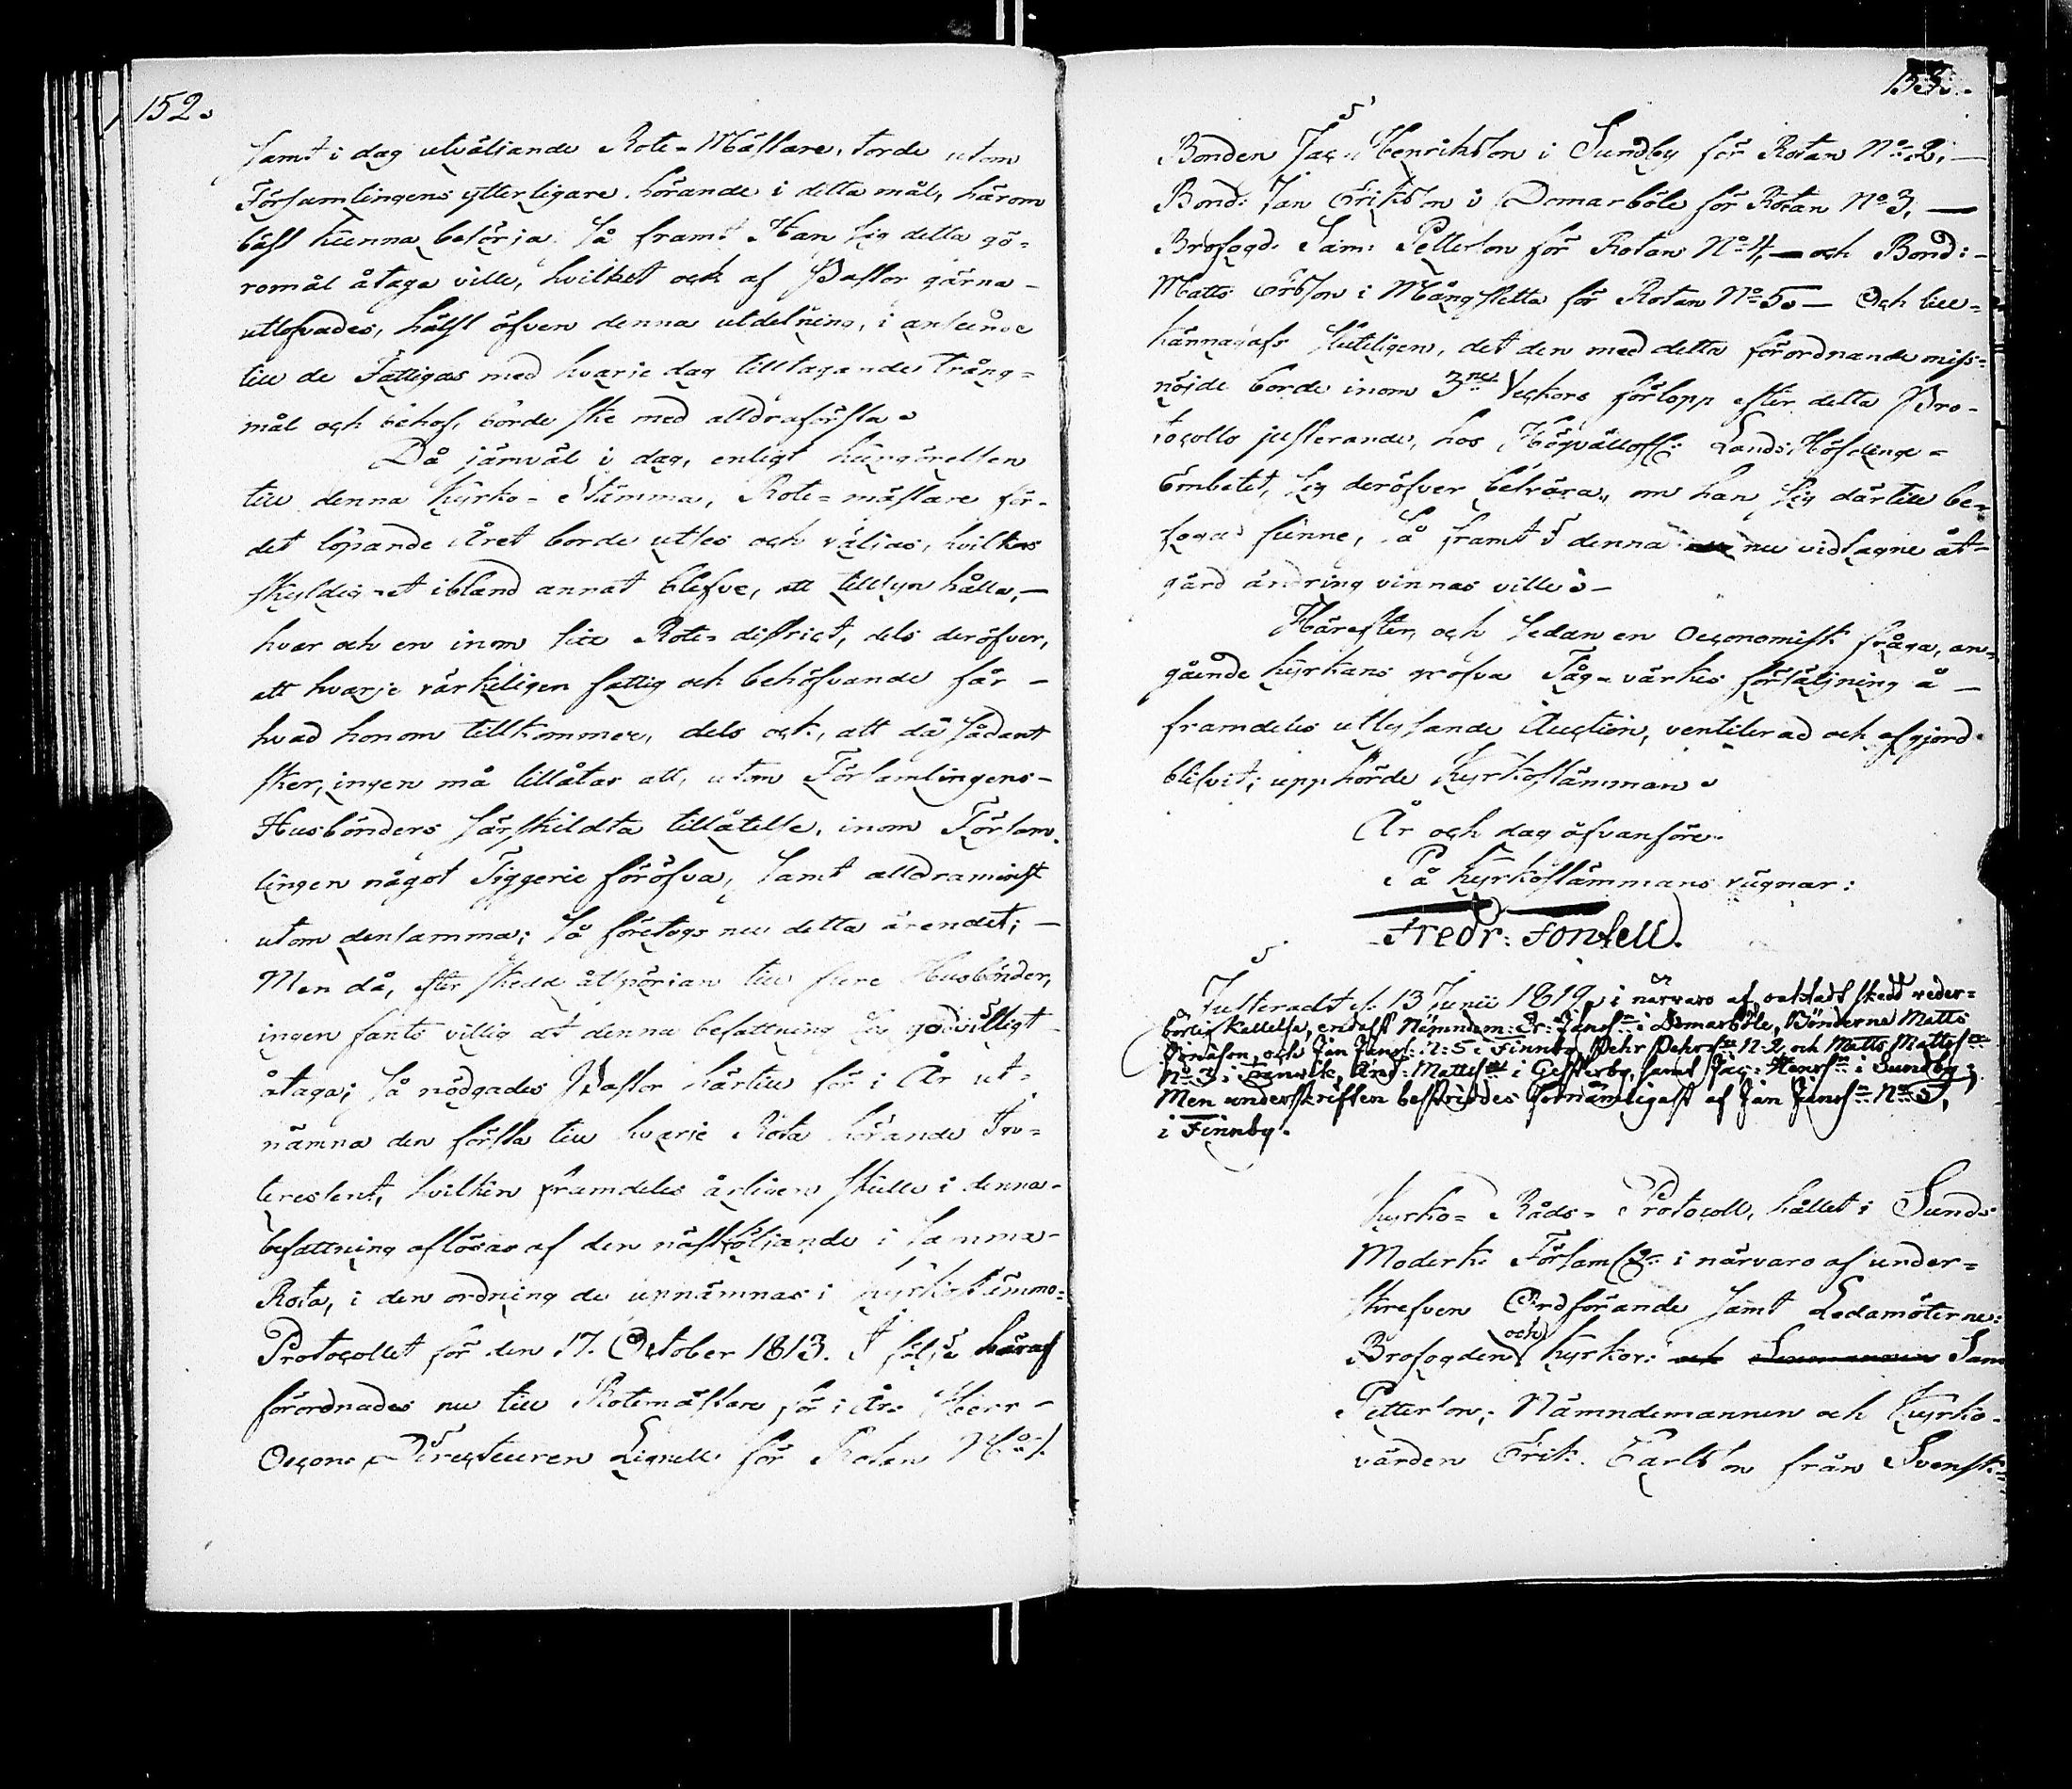 152.
samt i dag utväljande Rote-Mästare, torde utom
Församlingens ytterligare hörande i detta mål, härom
bäst kunna besörja. Så framt Han sig detta gö-
romål åtaga ville, hvilket ock af Pastor gärna
utlofvades, hälst öfven denna utdelning, i anseende
till de Fattigas med hvarje dag tilltagande Trång-
mål och behof, borde ske med alldraförsta.
Då jämväl i dag, enligt kungörelsen
till denna Kyrko-Stämma, Rote-mästare för
det löpande Året borde utses och väljas, hvilkas
skyldig-et ibland annat blefve, att tillsyn hålla,
hvar och en inom sitt Rote-district, dels deröfver,
att hvarje värkeligen fattig och behöfvande får
hvad honom tillkommer, dels ock, att då sådant
sker, ingen må tillåtas att, utom Församlingens
Husbönders särskildta tillåtelse, inom Försam-
lingen något Tiggerie föröfva, samt alldraminst
utom densamma; Så företogs nu detta ärendet;
Men då, efter skedd åtspörjan till flere Husbönder,
ingen fants villig at denna befattning sig godvilligt
åtaga; så nödgades Pastor härtill för i År ut-
nämna den första till hvarje Rota hörande In-
teressent, hvilken framdeles årligen skulle i denna
befattning aflösas af den nästföljande i samma
Rota, i den ordning de upnämnas i Kyrkostämmo-
Protocollet för den 17. October 1813. I följe häraf
förordnades nu till Rotemästare för i År: Herr
Oecon: Directeuren Lignell för Rotan No 1.
153.
Bonden Jac: Henrikson i Sundby för Rotan No 2,
Bond: Jan Erikson i Domarböle för Rotan No 3,
Brofogd: Sam: Petterson för Rotan No 4, och Bond:
Matts Ersson i Mångstetta för Rotan No 5. Och till-
kännagafs sluteligen, det den med detta förordnande miss-
nöjde borde inom 3ne Veckors förlopp efter detta Pro-
tocolls justerande, hos Högvällofl: Lands Höfdinge-
Embetet, sig deröfver besvära, om han sig därtill be-
fogad funne, så framt i denna nu vidtagne åt-
gärd ändring vinnas ville.
Härefter, och sedan en Oeconomisk fråga, an-
gående Kyrkans grofva Tåg-värkes försäljning å
framdeles utlysande Auction, ventilerad och afgjord
blifvit; upphörde Kyrkostämman.
År och dag öfvanföre.
På Kyrkostämmans vägnar:
Fredr: Fontell.
Justeradt d. 13 Junii 1819, i närvaro af, oaktadt skedd veder-
börlig kallelse, endast Nämndem: Er: Jansn i Domarböle, Bönderne Matts
och Jan Jansn: N: 5 i Finnby, Pehr Pehrsn N: 2 och Matts Mattssn
No 3 i Tranvik, And: Mattssn i Gesterby, samt Jac: Henrsn i Sundby;
Men underskriften bestriddes förnämligast af Jan Jansn No 5,
i Finnby.
Kyrko-Råds-Protocoll, hållet i Sunds
Moderk: Församl: i närvaro af under-
skrefven Ordförande samt Ledamöterne:
Brofogden och Kyrkov: Sam
Petterson, Nämndemannen och Kyrko-
värden Erik Carlson från Svensk-